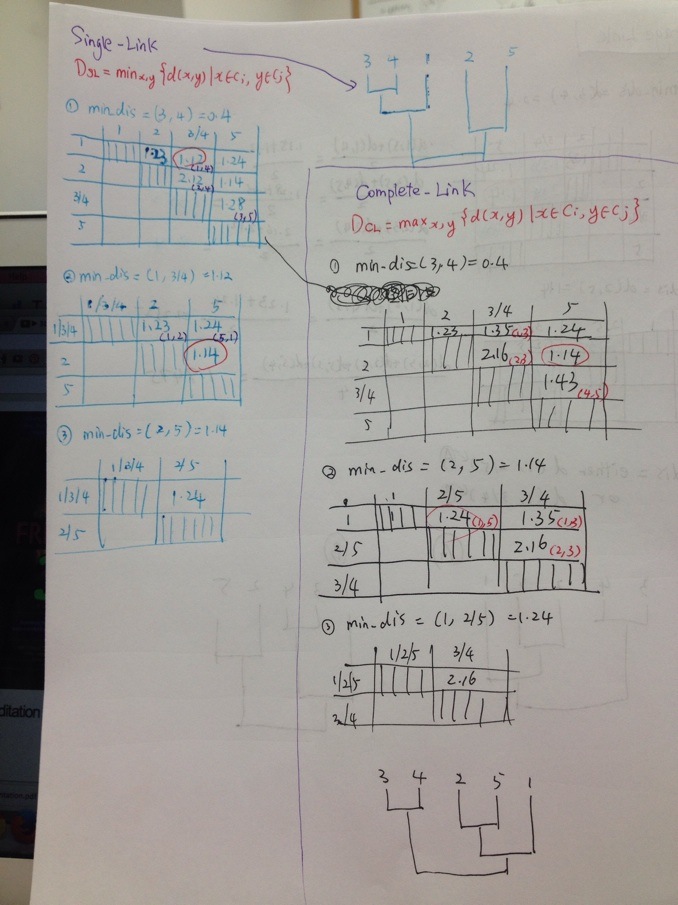 Single-Link
D_SL = min x,y {d(x,y) | x∈Ci, y∈Cj}
① min-dis = (3, 4) = 0.4
1 2 3/4 5
1 1.23 1.12 (1,4) 1.24
2 2.12 (2,4) 1.14
3/4 1.28 (3,5)
5
② min-dis = (1, 3/4) = 1.12
1/3/4 2 5
1/3/4 1.23 (1,2) 1.24 (5,1)
2 1.14
5
③ min-dis = (2, 5) = 1.14
1/3/4 2/5
1/3/4 1.24
2/5
3 4 1 2 5
Complete-Link
D_CL = max x,y {d(x,y) | x∈Ci, y∈Cj}
① min-dis=(3,4)=0.4
1 2 3/4 5
1 1.23 1.35 (1,3) 1.24
2 2.16 (2,3) 1.14
3/4 1.43 (4,5)
5
② min-dis = (2, 5) = 1.14
1 2/5 3/4
1 1.24 (1,5) 1.35 (1,3)
2/5 2.16 (2,3)
3/4
③ min-dis = (1, 2/5) = 1.24
1/2/5 3/4
1/2/5 2.16
3/4
3 4 2 5 1
ditation